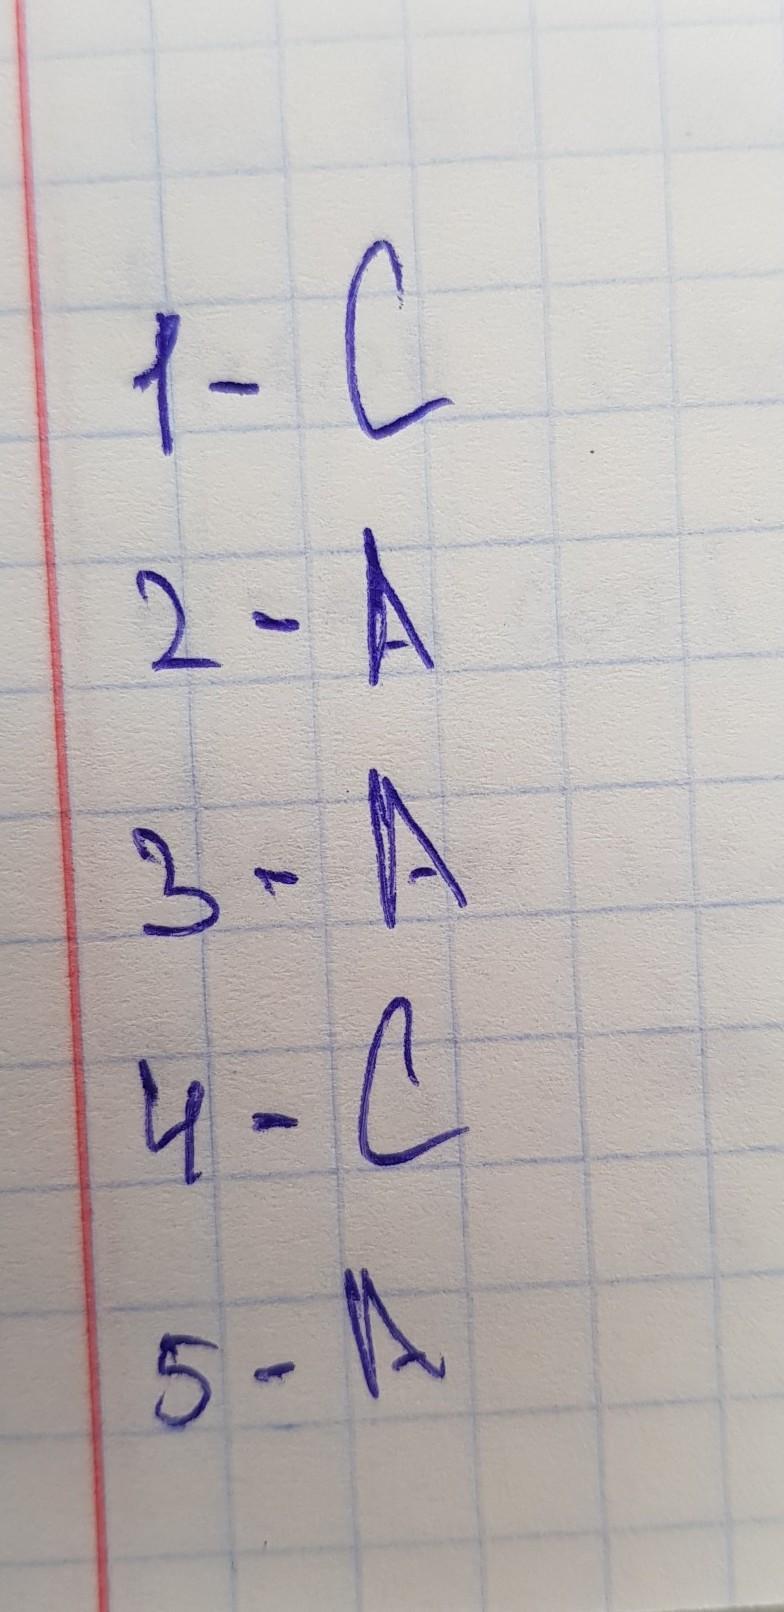 1 - C
2 - A
3 - A
4 - C
5 - A